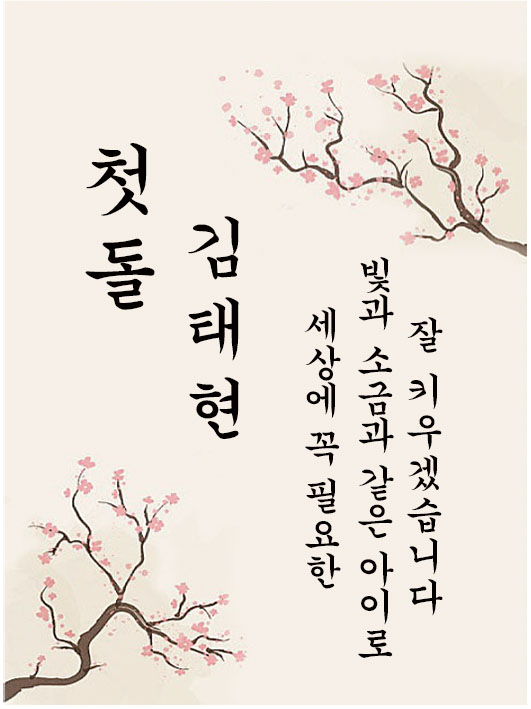 첫돌
김태현
세상에 꼭 필요한
빛과 소금과 같은 아이로
잘 키우겠습니다